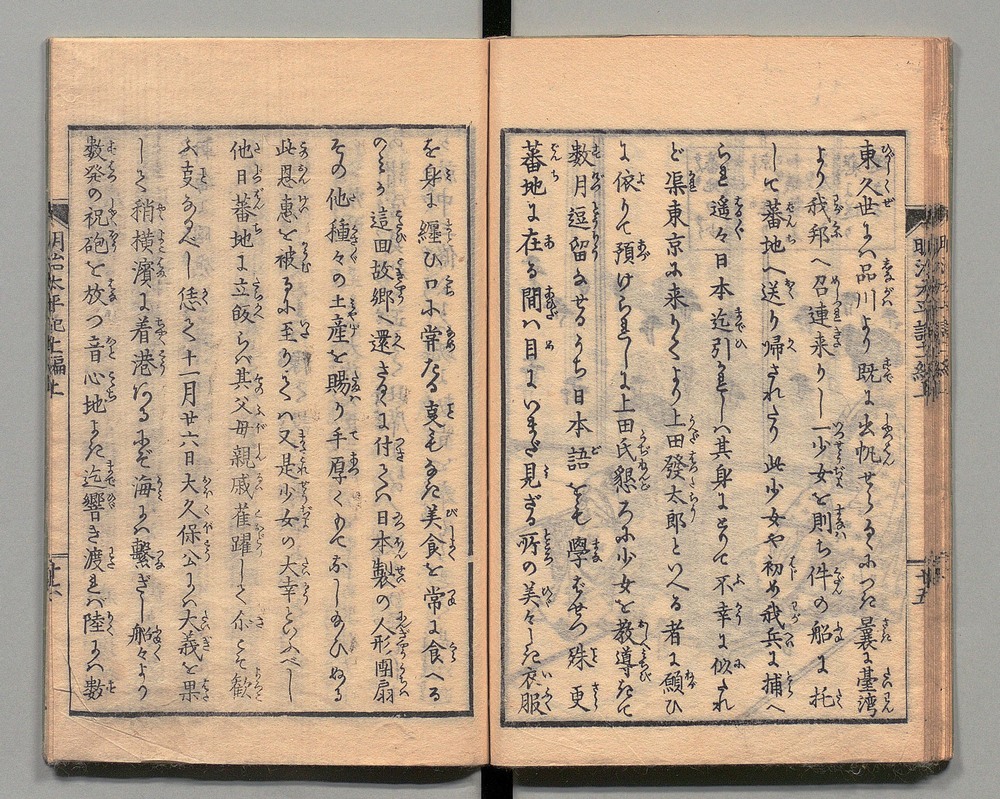 東久世には品川より既に出帆せらるゝにつき曩に臺湾
より我邦へ召連来りし一少女を則ち件の船に托
して蕃地へ送り帰されたり此少女や初め我兵に捕へ
られ遥々日本迄引かれしハ其身にとりて不幸に似たれ
ど渠東京に来りてより上田發太郎といへる者に願ひ
に依りて預けられしに上田氏懇ろに少女を教導きて
数月逗留なせるうち日本語をも學ばせつ殊更
蕃地に在る間ハ目にいまだ見ざる所の美々しき衣服
を身に纏ひ口に甞たる事もなき美食を常に食へる
のミか這回故郷へ還さるゝに付てハ日本製の人形團扇
その他種々の土産を賜り手厚くもてなしものひぬる
此恩恵を被るに至りてハ又是少女の大幸といふべし
他日蕃地に立皈らバ其父母親戚雀躍して尓こそ歓
ぶ事なるべし恁て十一月廿六日大久保公にハ大義を果
して稍横濱に着港ある にぞ海にハ繋ぎし船々より
数発の祝砲を放つ音心地よき迄響き渡れバ陸にハ数
明治太平記十一編上
十五
明治太平記十一編上